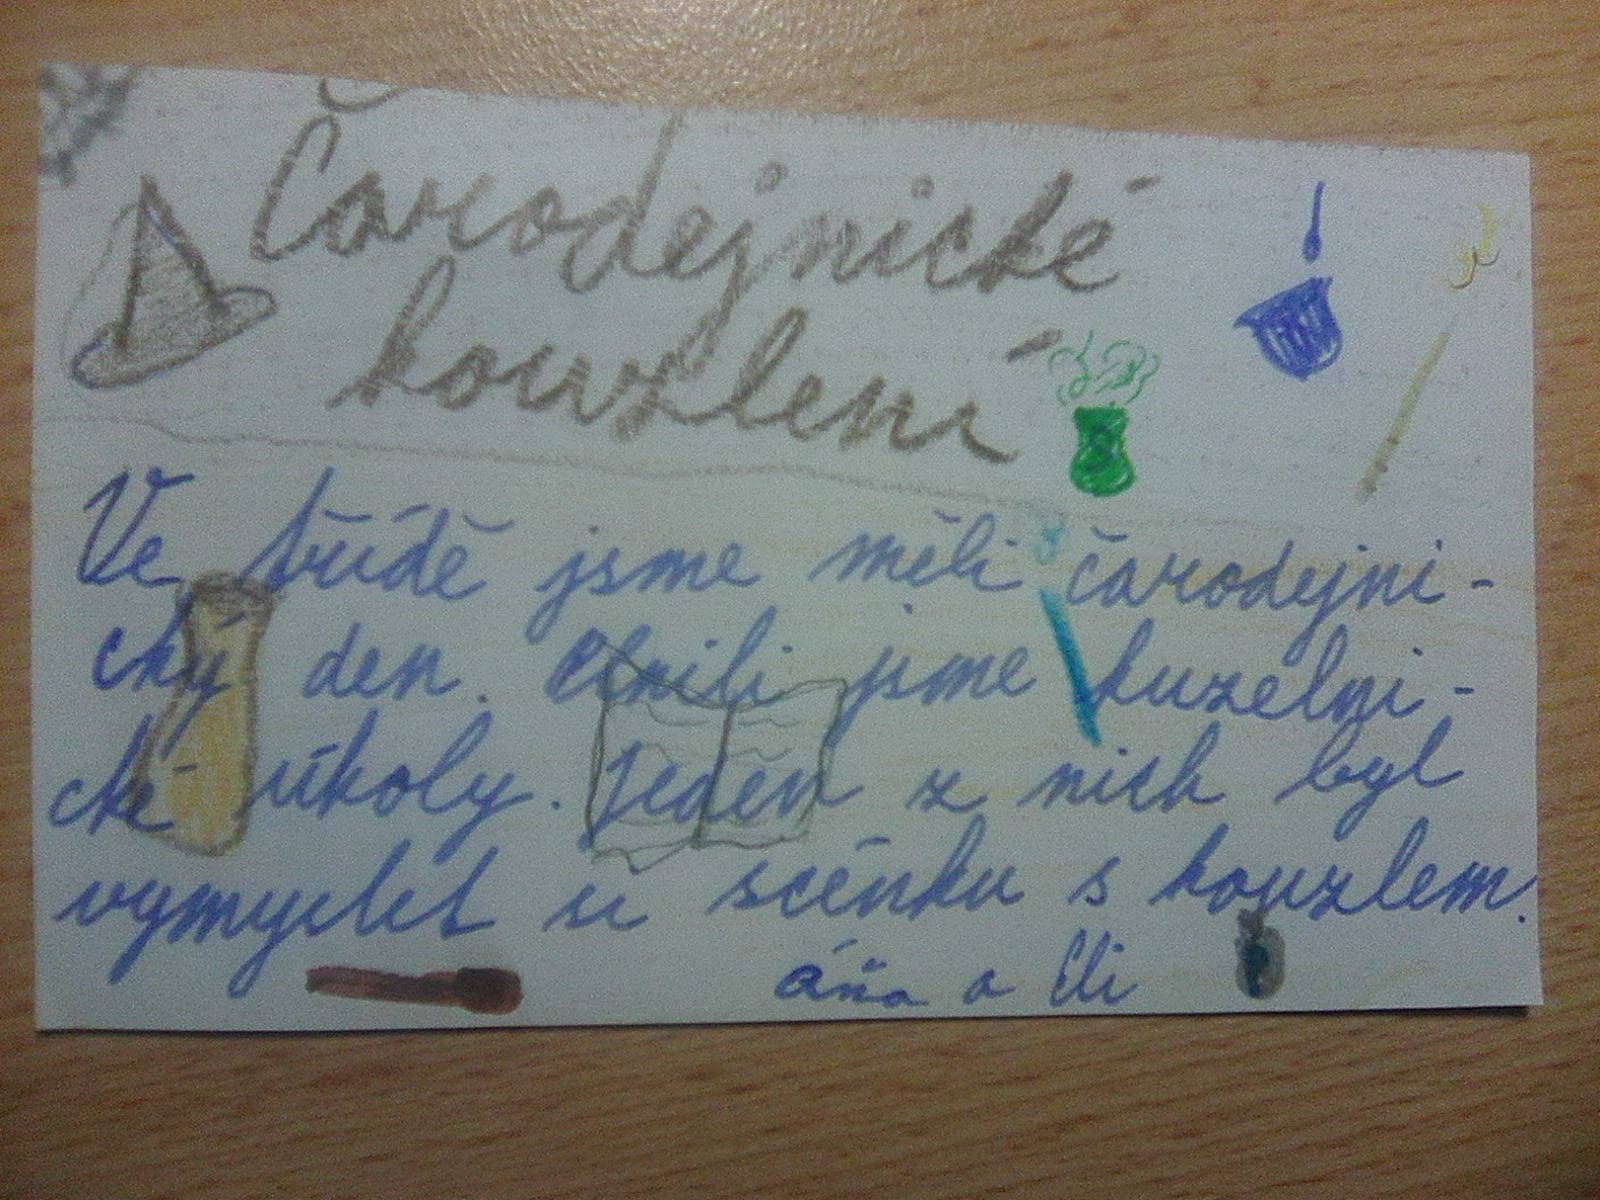 Čarodejnické
kouzlení
Ve třídě jsme měli čarodejni-
cký den. Plnili jsme kuzelni-
cké úkoly. Jeden z nich byl
vymyslet si scénku s kouzlem.
áňa a Eli